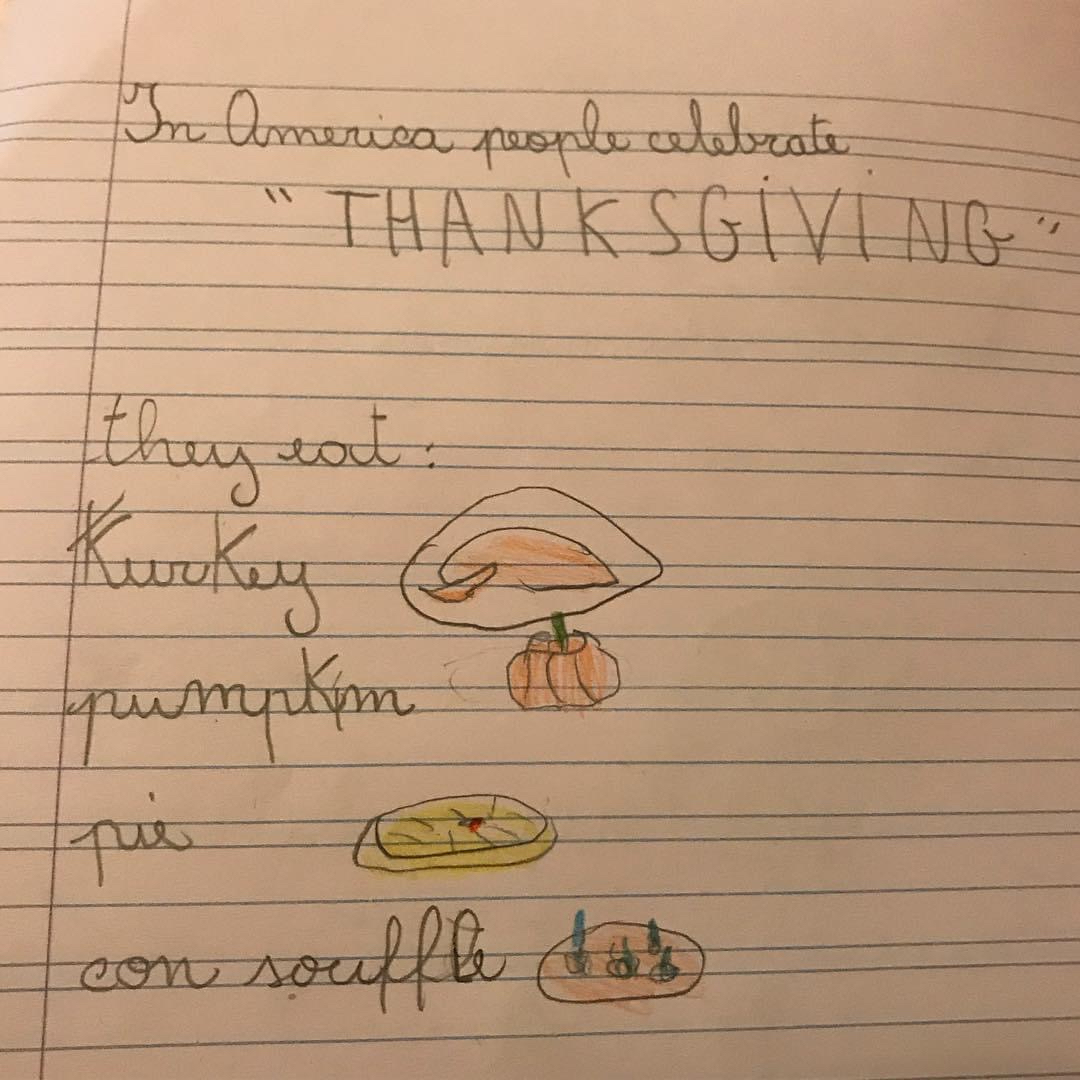 In America people celebrate
"THANKSGİVİNG"
they eat:
KurKey
pumpKin
pie
con souffle